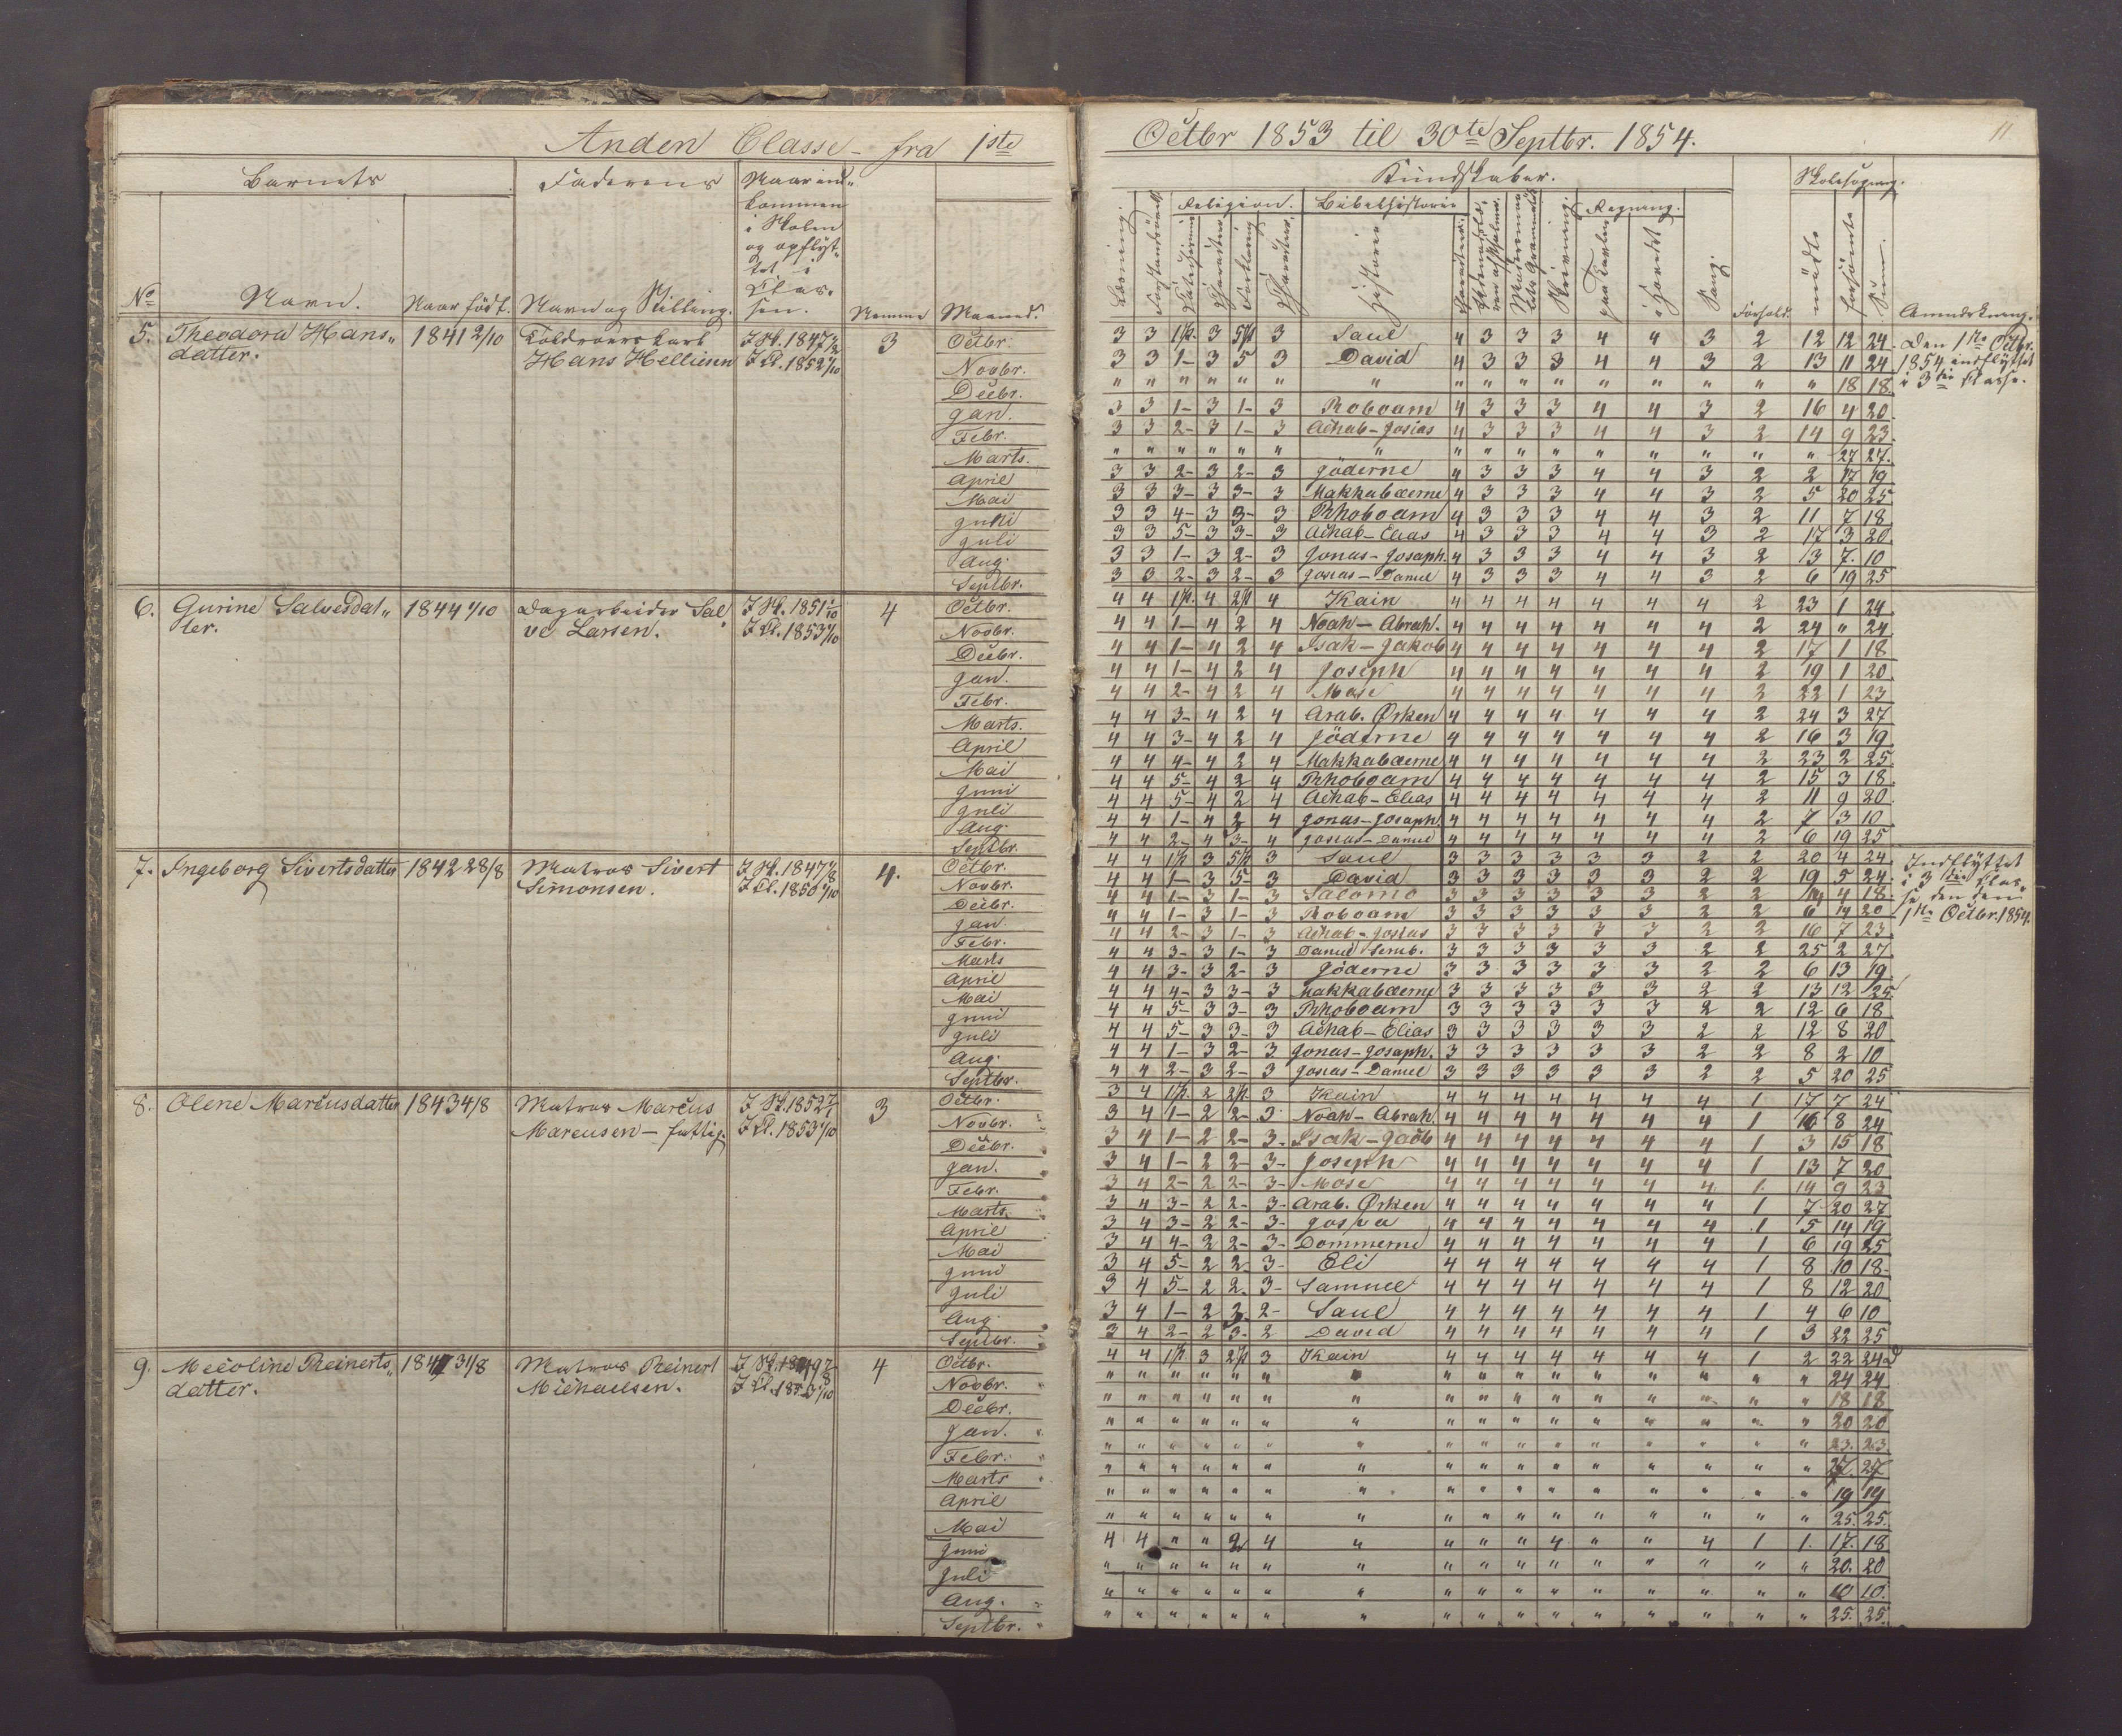 Anden Classe - fra 1ste
Octbr 1853 til 30te Septbr. 1854.
11
Barnets
Faderens
Naar ind-
kommen
i Skolen
og opflyt-
tet i
Clas-
sen.
No
Navn.
Naar født.
Navn og Stilling.
Nemme
Maaned.
Kundskaber.
Skolesøgning.
Religion.
Bibelhistorie
Regning.
Læsning.
Historie
Skrivning.
paa Tavlen
i Hovedet
Sang.
Forhold.
mødte
forsømte
Sum.
Anmærkning.
5. Theodora Hans-
datter.
1841 2/10
Hans Helliesen
3
Octbr.
Novbr.
Decbr.
Jan.
Febr.
Marts.
April
Mai
Juni
Juli
Aug.
Septbr.
3 3 3 3 Saul 4 3 3 3 4 4 3 2 12 12 24
3 3 1- 3 5 3 David 4 3 3 3 4 4 3 2 13 11 24
" " " " " " " " " " " " " " " " 18 18
3 3 1- 3 1- 3 Roboam 4 3 3 3 4 4 3 2 16 4 20
3 3 2- 3 1- 3 Achab - Josias 4 3 3 3 4 4 3 2 14 9 23
" " " " " " " " " " " " " " " " 27 27.
3 3 2- 3 2- 3 Jöderne 4 3 3 3 4 4 3 2 2 17 19
3 3 3- 3 3- 3 Makkabæerne 4 3 3 3 4 4 3 2 5 20 25
3 3 4- 3 3- 3 Rhoboam 4 3 3 3 4 4 3 2 11 7 18
3 3 5- 3 3- 3 Achab - Elias 4 3 3 3 4 4 3 2 17 3 20
3 3 1- 3 2- 3 Jonas - Josaph. 4 3 3 3 4 4 3 2 3 7 10
3 3 2- 3 2- 3 Josias - Daniel 4 3 3 3 4 4 3 2 6 19 25
Den 1ste Octbr.
1854 indflyttet
i 3die Classe.
6. Gurine Salvesdat-
ter.
1844 1/10
Dagarbeider Sal-
ve Larsen.
J Sk. 1851 1/10
J Cl. 1853 1/10
4
Octbr.
Novbr.
Decbr.
Jan.
Febr.
Marts.
April
Mai
Juni
Juli
Aug.
Septbr.
4 4 4 4 Kain 4 4 4 4 4 4 4 2 23 1 24
4 4 1- 4 2 4 Noah - Abrah. 4 4 4 4 4 4 4 2 24 " 24
4 4 1- 4 2 4 Isak - Jakob 4 4 4 4 4 4 4 2 17 1 18
4 4 1- 4 2 4 Joseph 4 4 4 4 4 4 4 2 19 1 20
4 4 2- 4 2 4 Mose 4 4 4 4 4 4 4 2 22 1 23
4 4 3- 4 2 4 Arab. Ørken 4 4 4 4 4 4 4 2 24 3 27
4 4 3- 4 2 4 Jöderne 4 4 4 4 4 4 4 2 16 3 19
4 4 4- 4 2 4 Makkabæerne 4 4 4 4 4 4 4 2 23 2 25
4 4 5- 4 2 4 Rhoboam 4 4 4 4 4 4 4 2 15 3 18
4 4 5- 4 2 4 Achab - Elias 4 4 4 4 4 4 4 2 11 9 20
4 4 1- 4 2 4 Jonas - Josaph. 4 4 4 4 4 4 4 2 7 3 10
4 4 2- 4 3- 4 Josias - Daniel 4 4 4 4 4 4 4 2 6 19 25
7. Ingeborg Sivertsdatter
1842 28/8
Matros Sivert
Simonsen.
J Cl. 1850 1/10
4.
Octbr.
Novbr.
Decbr.
Jan.
Febr.
Marts
April
Mai
Juni
Juli
Aug.
Septbr.
4 4 3 3 Saul 3 3 3 3 3 3 2 2 20 4 24
4 4 1- 3 5- 3 David 3 3 3 3 3 3 2 2 19 5 24
4 4 1- 3 1- 3 Salomo 3 3 3 3 3 3 2 2 14 4 18
4 4 1- 3 1- 3 Roboam 3 3 3 3 3 3 2 2 6 14 20
4 4 2- 3 1- 3 Achab - Josias 3 3 3 3 3 3 2 2 16 7 23
4 4 3- 3 1- 3 Daniel 3 3 3 3 3 3 2 2 25 2 27
4 4 3- 3 2- 3 Jöderne 3 3 3 3 3 3 2 2 6 13 19
4 4 4- 3 3- 3 Makkabæerne 3 3 3 3 3 3 2 2 13 12 25
4 4 5- 3 3- 3 Rhoboam 3 3 3 3 3 3 2 2 12 6 18
4 4 5- 3 3- 3 Achab - Elias 3 3 3 3 3 3 2 2 12 8 20
4 4 1- 3 2- 3 Jonas - Josaph. 3 3 3 3 3 3 2 2 8 2 10
4 4 2- 3 2- 3 Josias - Daniel 3 3 3 3 3 3 2 2 5 20 25
Indflyttet
i 3die Clas-
se den
1ste Octbr. 1854.
8. Olene Marcusdatter
1843 4/8
Matros Marcus
Marcusen - fattig.
J Cl. 1853 1/10
3
Octbr.
Novbr.
Decbr.
Jan.
Febr.
Marts.
April
Mai
Juni
Juli
Aug.
Septbr.
3 4 2 3 Kain 4 4 4 4 4 4 4 1 17 7 24
3 4 1- 2 2- 3 Noah - Abrah. 4 4 4 4 4 4 4 1 16 8 24
3 4 1- 2 2- 3- Isak - Jacob 4 4 4 4 4 4 4 1 3 15 18
3 4 1- 2 2- 3- Joseph 4 4 4 4 4 4 4 1 13 7 20
3 4 2- 2 2- 3- Mose 4 4 4 4 4 4 4 1 14 9 23
3 4 3- 2 2- 3- Arab. Ørken 4 4 4 4 4 4 4 1 7 20 27
3 4 3- 2 2- 3- Josva 4 4 4 4 4 4 4 1 5 14 19
3 4 4- 2 2- 3- Dommerne 4 4 4 4 4 4 4 1 6 19 25
3 4 5- 2 2- 3- Eli 4 4 4 4 4 4 4 1 8 10 18
3 4 5- 2 2- 3- Samuel 4 4 4 4 4 4 4 1 8 12 20
3 4 1- 2 2- Saul 4 4 4 4 4 4 4 1 4 6 10
3 4 2- 2 3- 2 David 4 4 4 4 4 4 4 1 3 22 25
9. Mecoline Reinerts-
datter.
31/8
Matros Reinert
Michaelsen.
4
Octbr.
Novbr.
Decbr.
Jan.
Febr.
Marts
April
Mai
Juni
Juli
Aug.
Septbr.
4 4 3 3 Kain 4 4 4 4 4 4 4 1 2 22 24
" " " " " " " " " " " " " " " 24 24
" " " " " " " " " " " " " " " " 18 18
" " " " " " " " " " " " " " " " 20 20
" " " " " " " " " " " " " " " " 23. 23.
" " " " " " " " " " " " " " " " 27. 27
" " " " " " " " " " " " " " " " 19 19
" " " " " " " " " " " " " " " " 25. 25.
4 4 " " 2 4 " " " " 4 " " 4 1 1. 17. 18
" " " " " " " " " " " " " " " " 20. 20
" " " " " " " " " " " " " " " " 10 10.
" " " " " " " " " " " " " " " " 25. 25.